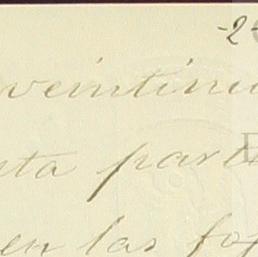 -2-
veintinu
sta part
en las fo